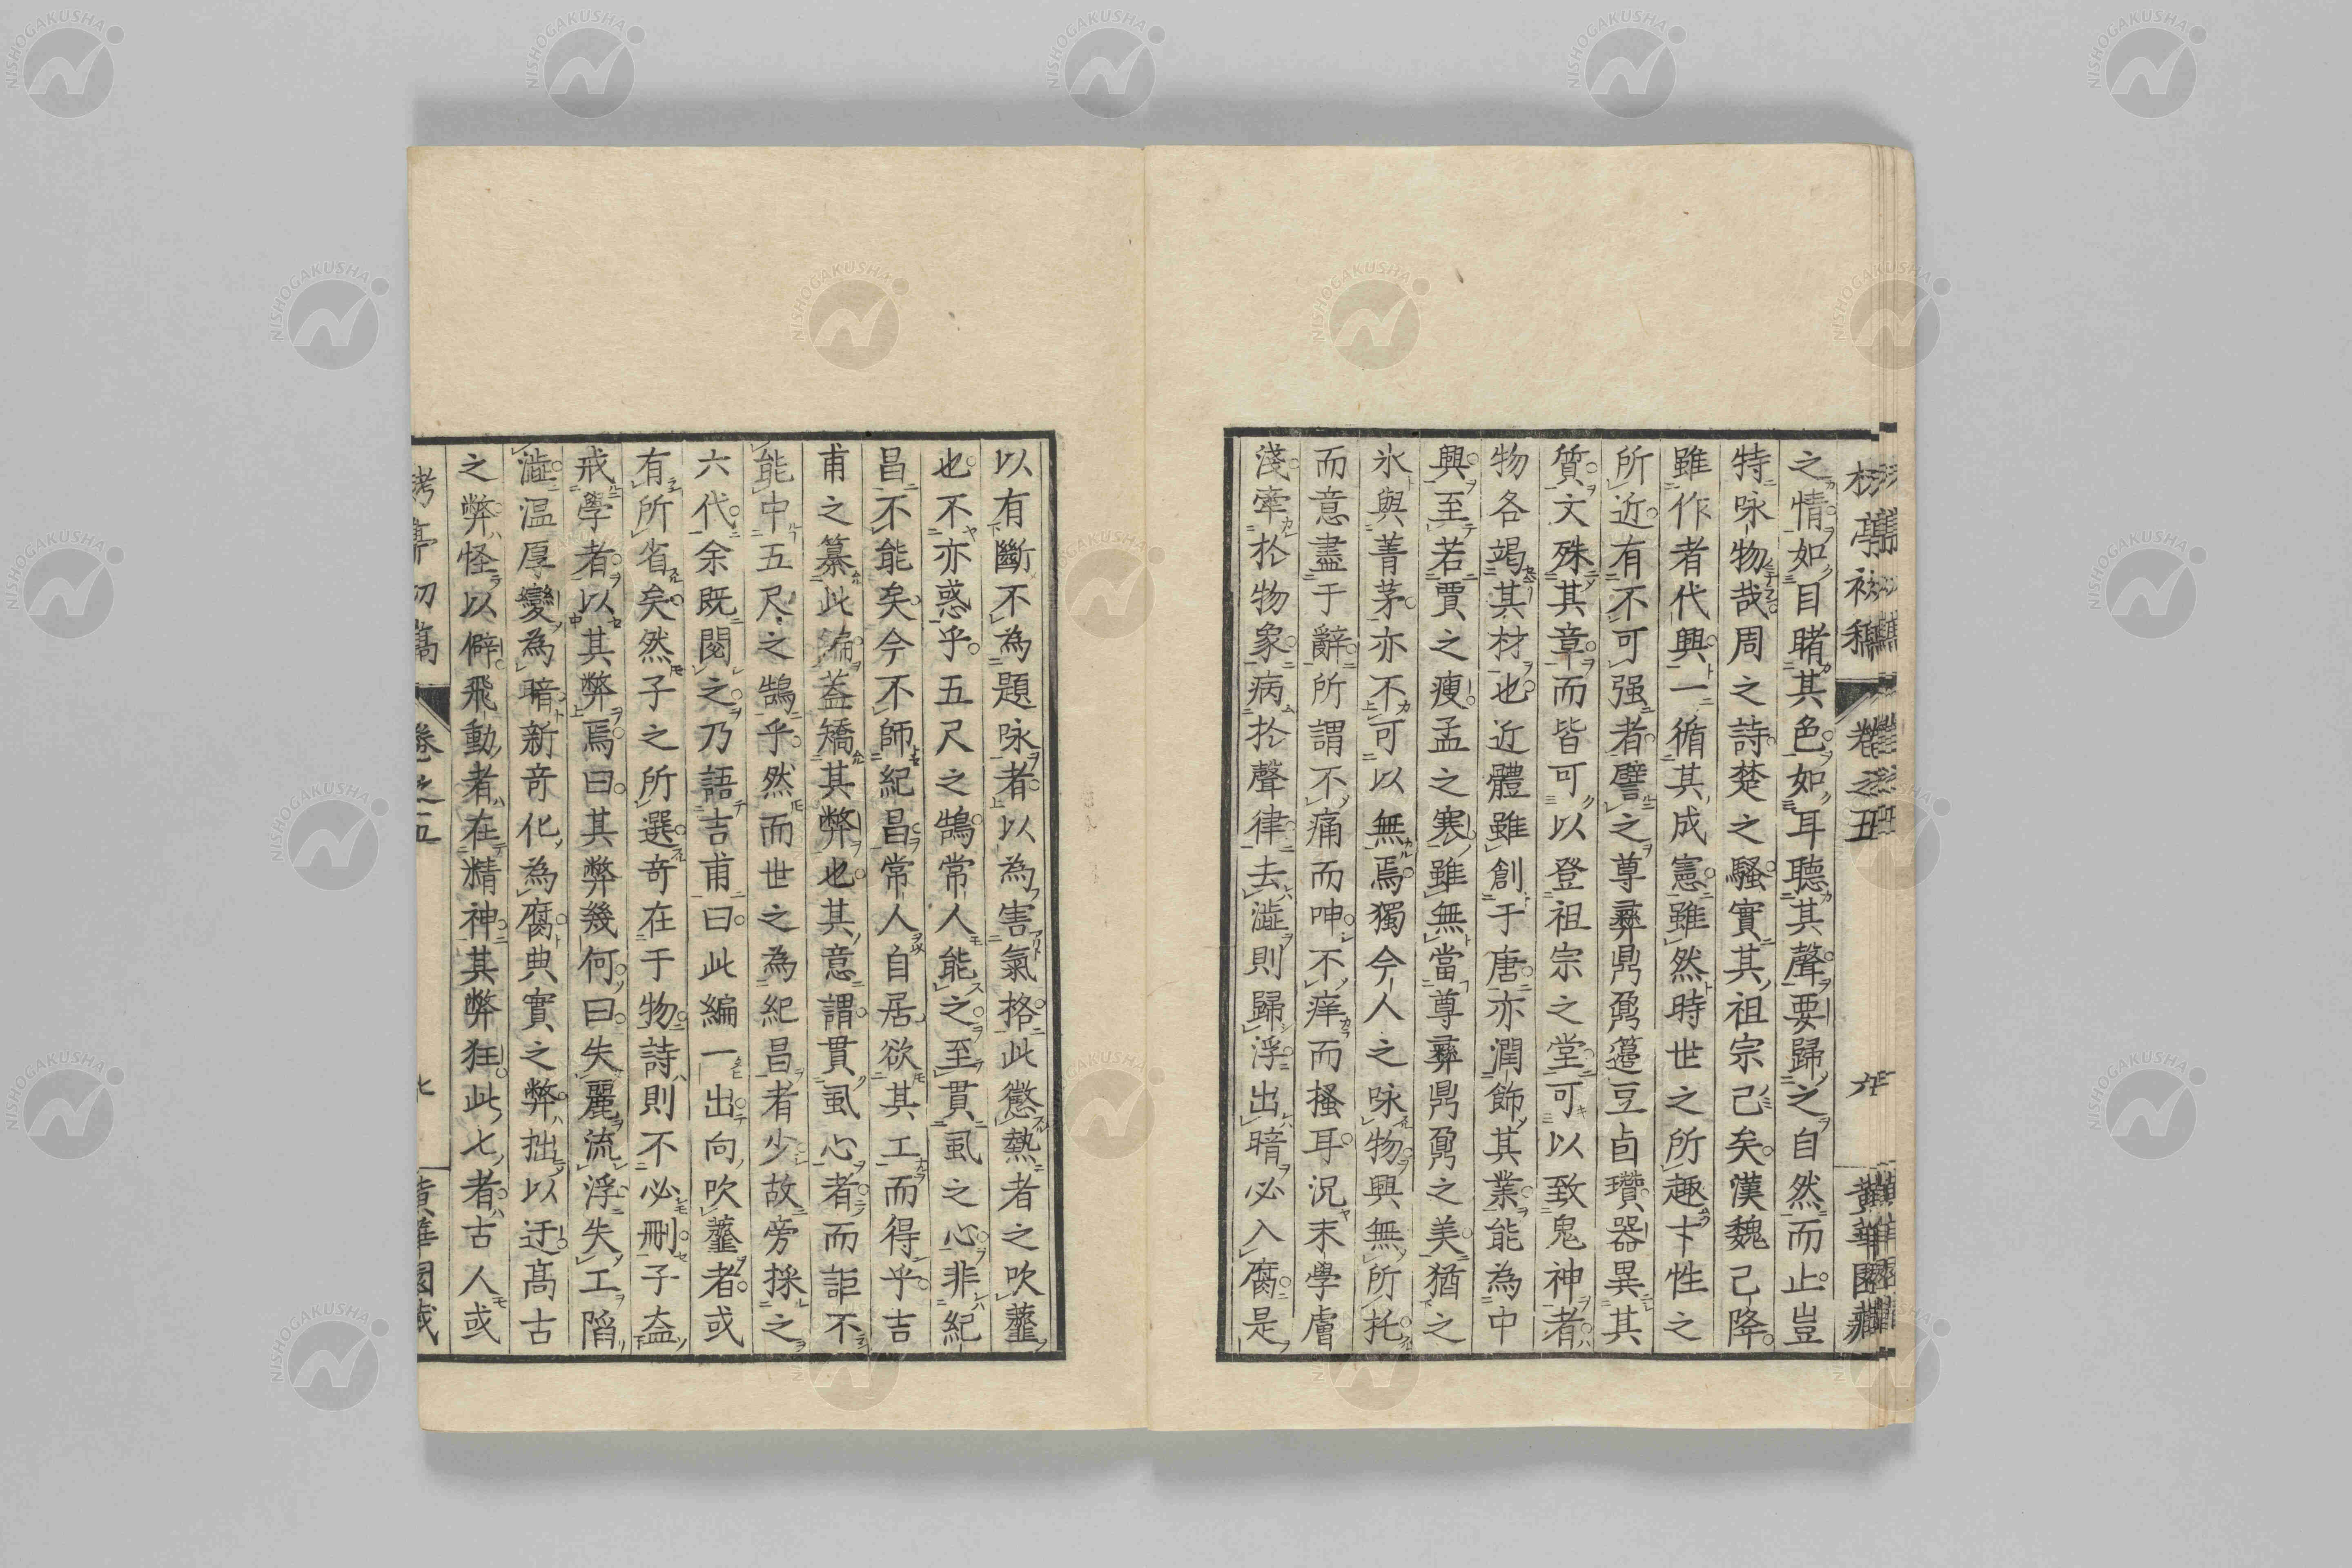 卷之五
之情如目睹其色如耳聽其聲要歸之自然而止豈
特咏物哉周之詩楚之騷實其祖宗己矣漢魏己降
雖作者代興一循其成憲雖然時世之所趣卞性之
所近有不可强者譬之尊彛鼎鼐籩豆卣瓚器異其
質文殊其章而皆可以登祖宗之堂可以致鬼神者
物各竭其材也近體雖創于唐亦潤飾其業能為中
興至若賈之瘦孟之寒雖無當尊彛鼎鼐之美猶之
氷與菁茅亦不可以無焉獨今人之咏物興無所托
而意盡于辭所謂不痛而呻不痒而搔耳況末學膚
淺牽於物象病於聲律去澁則歸浮出暗必入腐是
以有斷不為題咏者以為害氣格此懲熱者之吹虀
也不亦惑乎五尺之鵠常人能之至貫虱之心非紀
昌不能矣今不師紀昌昌常人自居欲其工而得乎吉
甫之纂此編蓋矯其弊也其意謂貫虱心者而詎不
能中五尺之鵠乎然而世之為紀昌者少故旁採之
六代余既閱之乃語吉甫曰此編一出向吹虀者或
有所省矣然子之所選奇在于物詩則不必刪子盍
戒學者以其弊焉曰其弊幾何曰失麗流浮失工陷
澁温厚變為暗新奇化為腐典實之弊拙以迂髙古
之弊怪以僻飛動者在精神其弊狂此七者古人或
卷之五
NISHOGAKUSHA